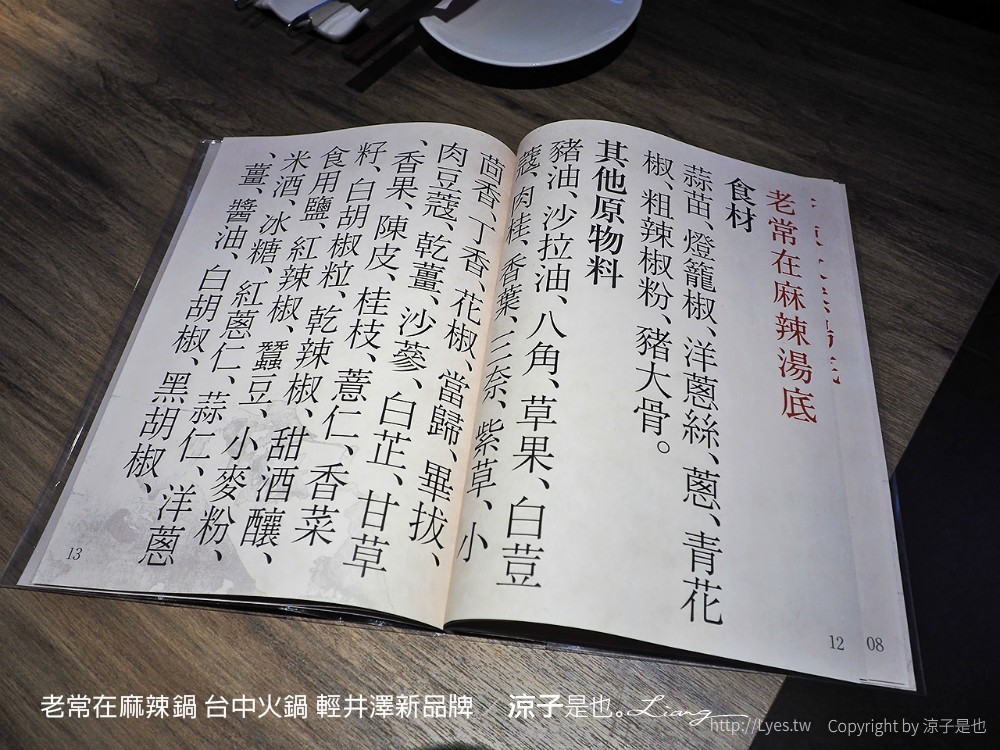 老常在麻辣湯底
食材
蒜苗、燈籠椒、洋蔥絲、蔥、青花
椒、粗辣椒粉、豬大骨。
其他原物料
豬油、沙拉油、八角、草果、白荳
蔻、肉桂、香葉、三奈、紫草、小
茴香、丁香、花椒、當歸、畢拔、
肉豆蔻、乾薑、沙蔘、白芷、甘草
、香果、陳皮、桂枝、薏仁、香菜
籽、白胡椒粒、乾辣椒、甜酒釀、
食用鹽、紅辣椒、蠶豆、小麥粉、
米酒、冰糖、紅蔥仁、蒜仁、洋蔥
、薑、醬油、白胡椒、黑胡椒、
13
12
08
老常在麻辣鍋 台中火鍋 輕井澤新品牌 / 涼子是也。Liang
http://Lyes.tw Copyright by 涼子是也